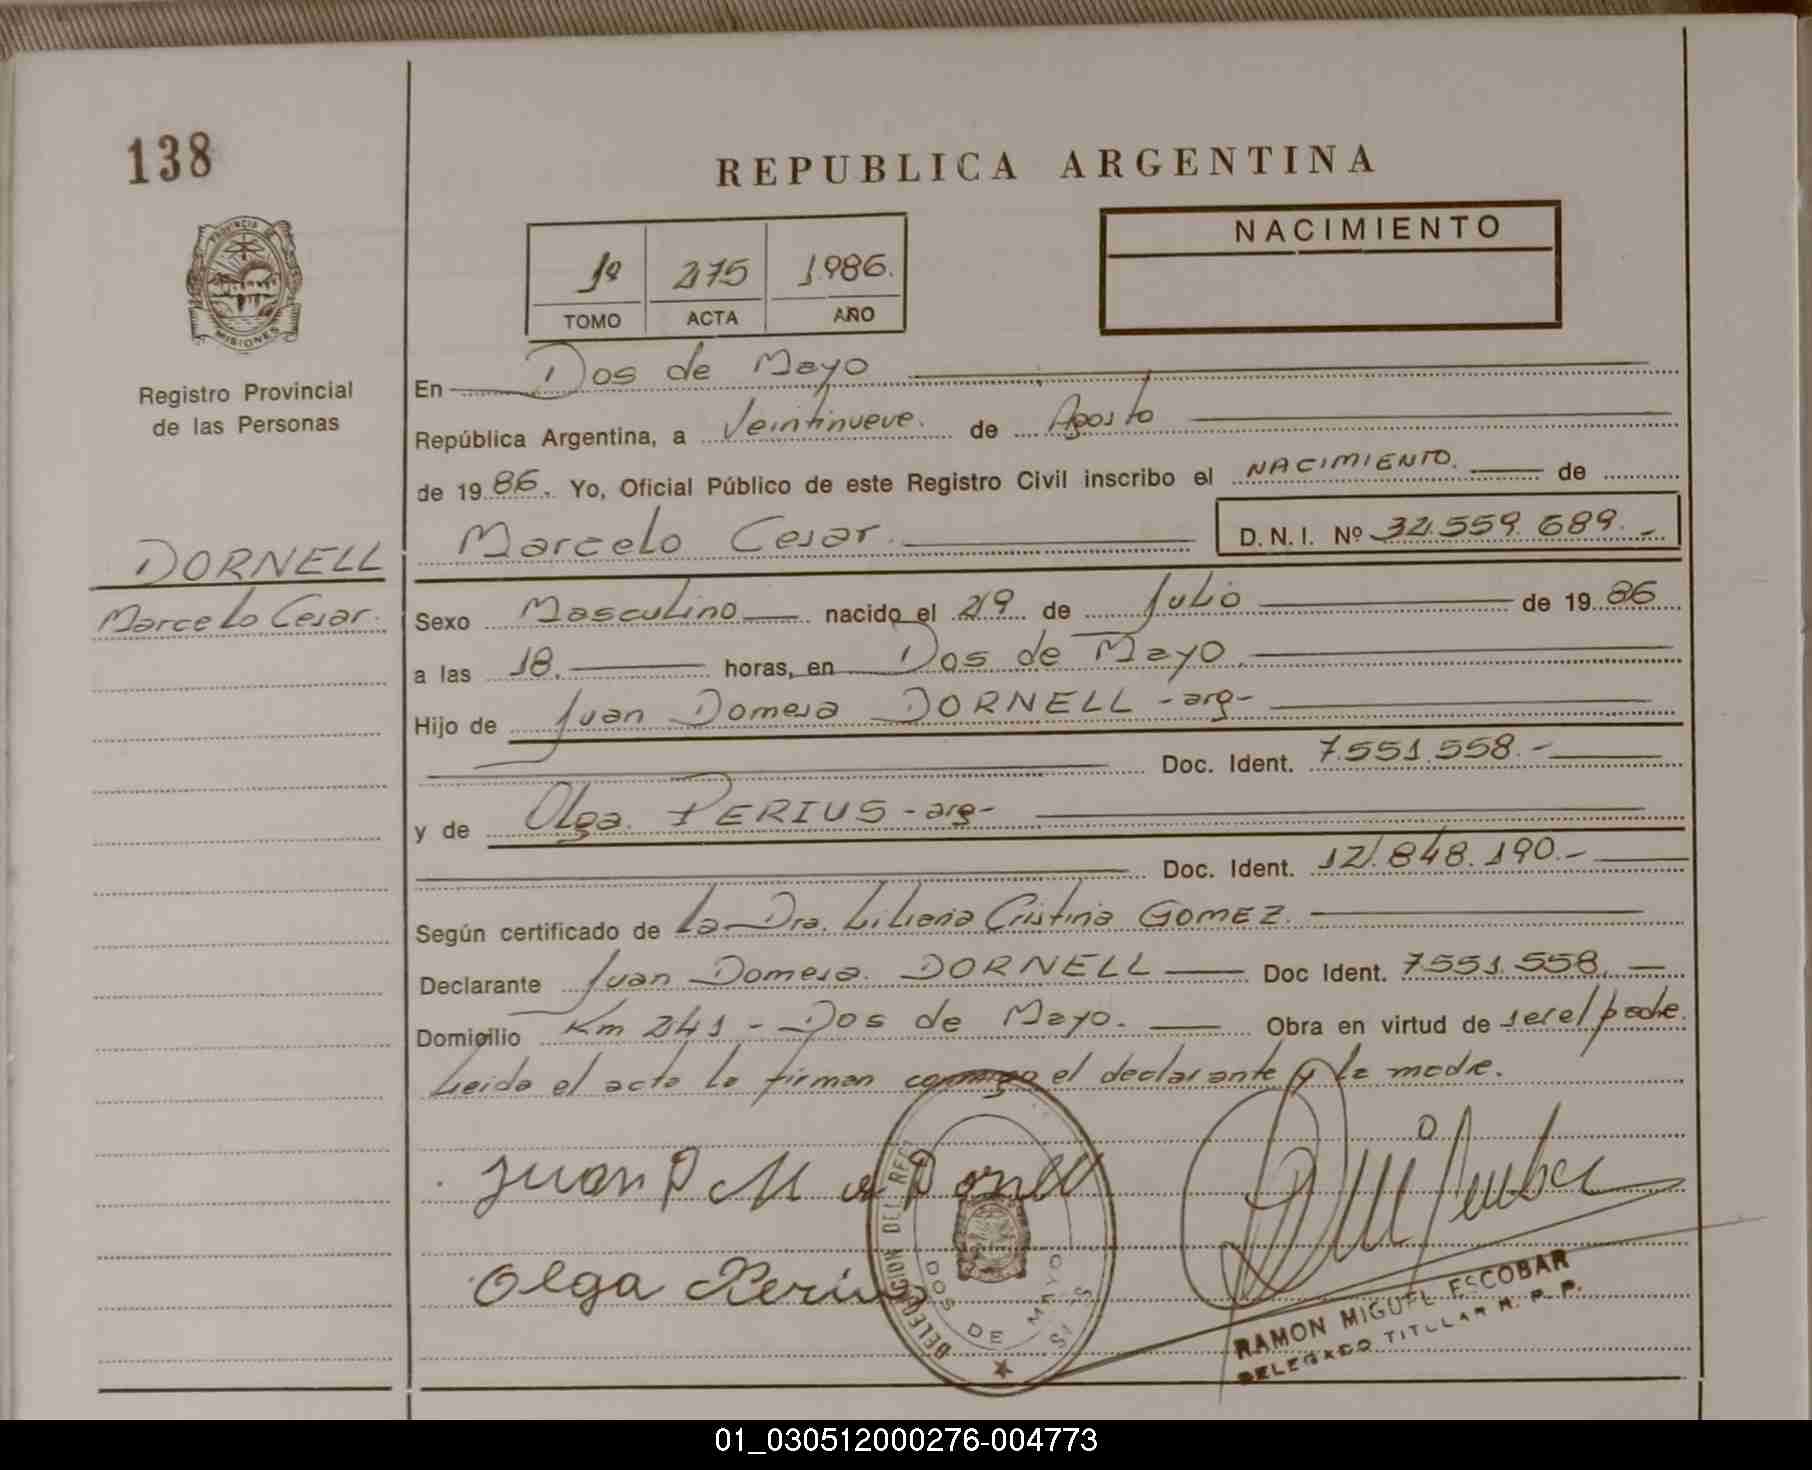 138
REPUBLICA ARGENTINA
PROVINCIA DE
MISIONES
Registro Provincial
de las Personas
1º 275 1.986.
TOMO ACTA AÑO
NACIMIENTO
En Dos de Mayo
República Argentina, a Veintinueve. de Agosto
de 19 86. Yo, Oficial Público de este Registro Civil inscribo el NACIMIENTO. de
Marcelo Cesar. D.N.I. Nº 32.559.689.-
DORNELL
Marcelo Cesar.
Sexo Masculino nacido el 29 de Julio de 19 86
a las 18. horas, en Dos de Mayo.
Hijo de Juan Domesa DORNELL -arg-
Doc. Ident. 7.551.558.-
y de Olga. PERIUS -arg-
Doc. Ident. 12.848.190.-
Según certificado de la Dra. Liliana Cristina GOMEZ.
Declarante Juan Domesa. DORNELL Doc Ident. 7.551.558.
Domicilio Km 241 - Dos de Mayo. Obra en virtud de ser el padre.
Leida el acta la firman conmigo el declarante y la madre.
Juan Dornell
Olga Perius
DELEGACION DEL REG.
DOS DE MAYO
RAMON MIGUEL ESCOBAR
DELEGADO TITULAR R. P. P.
01_030512000276-004773